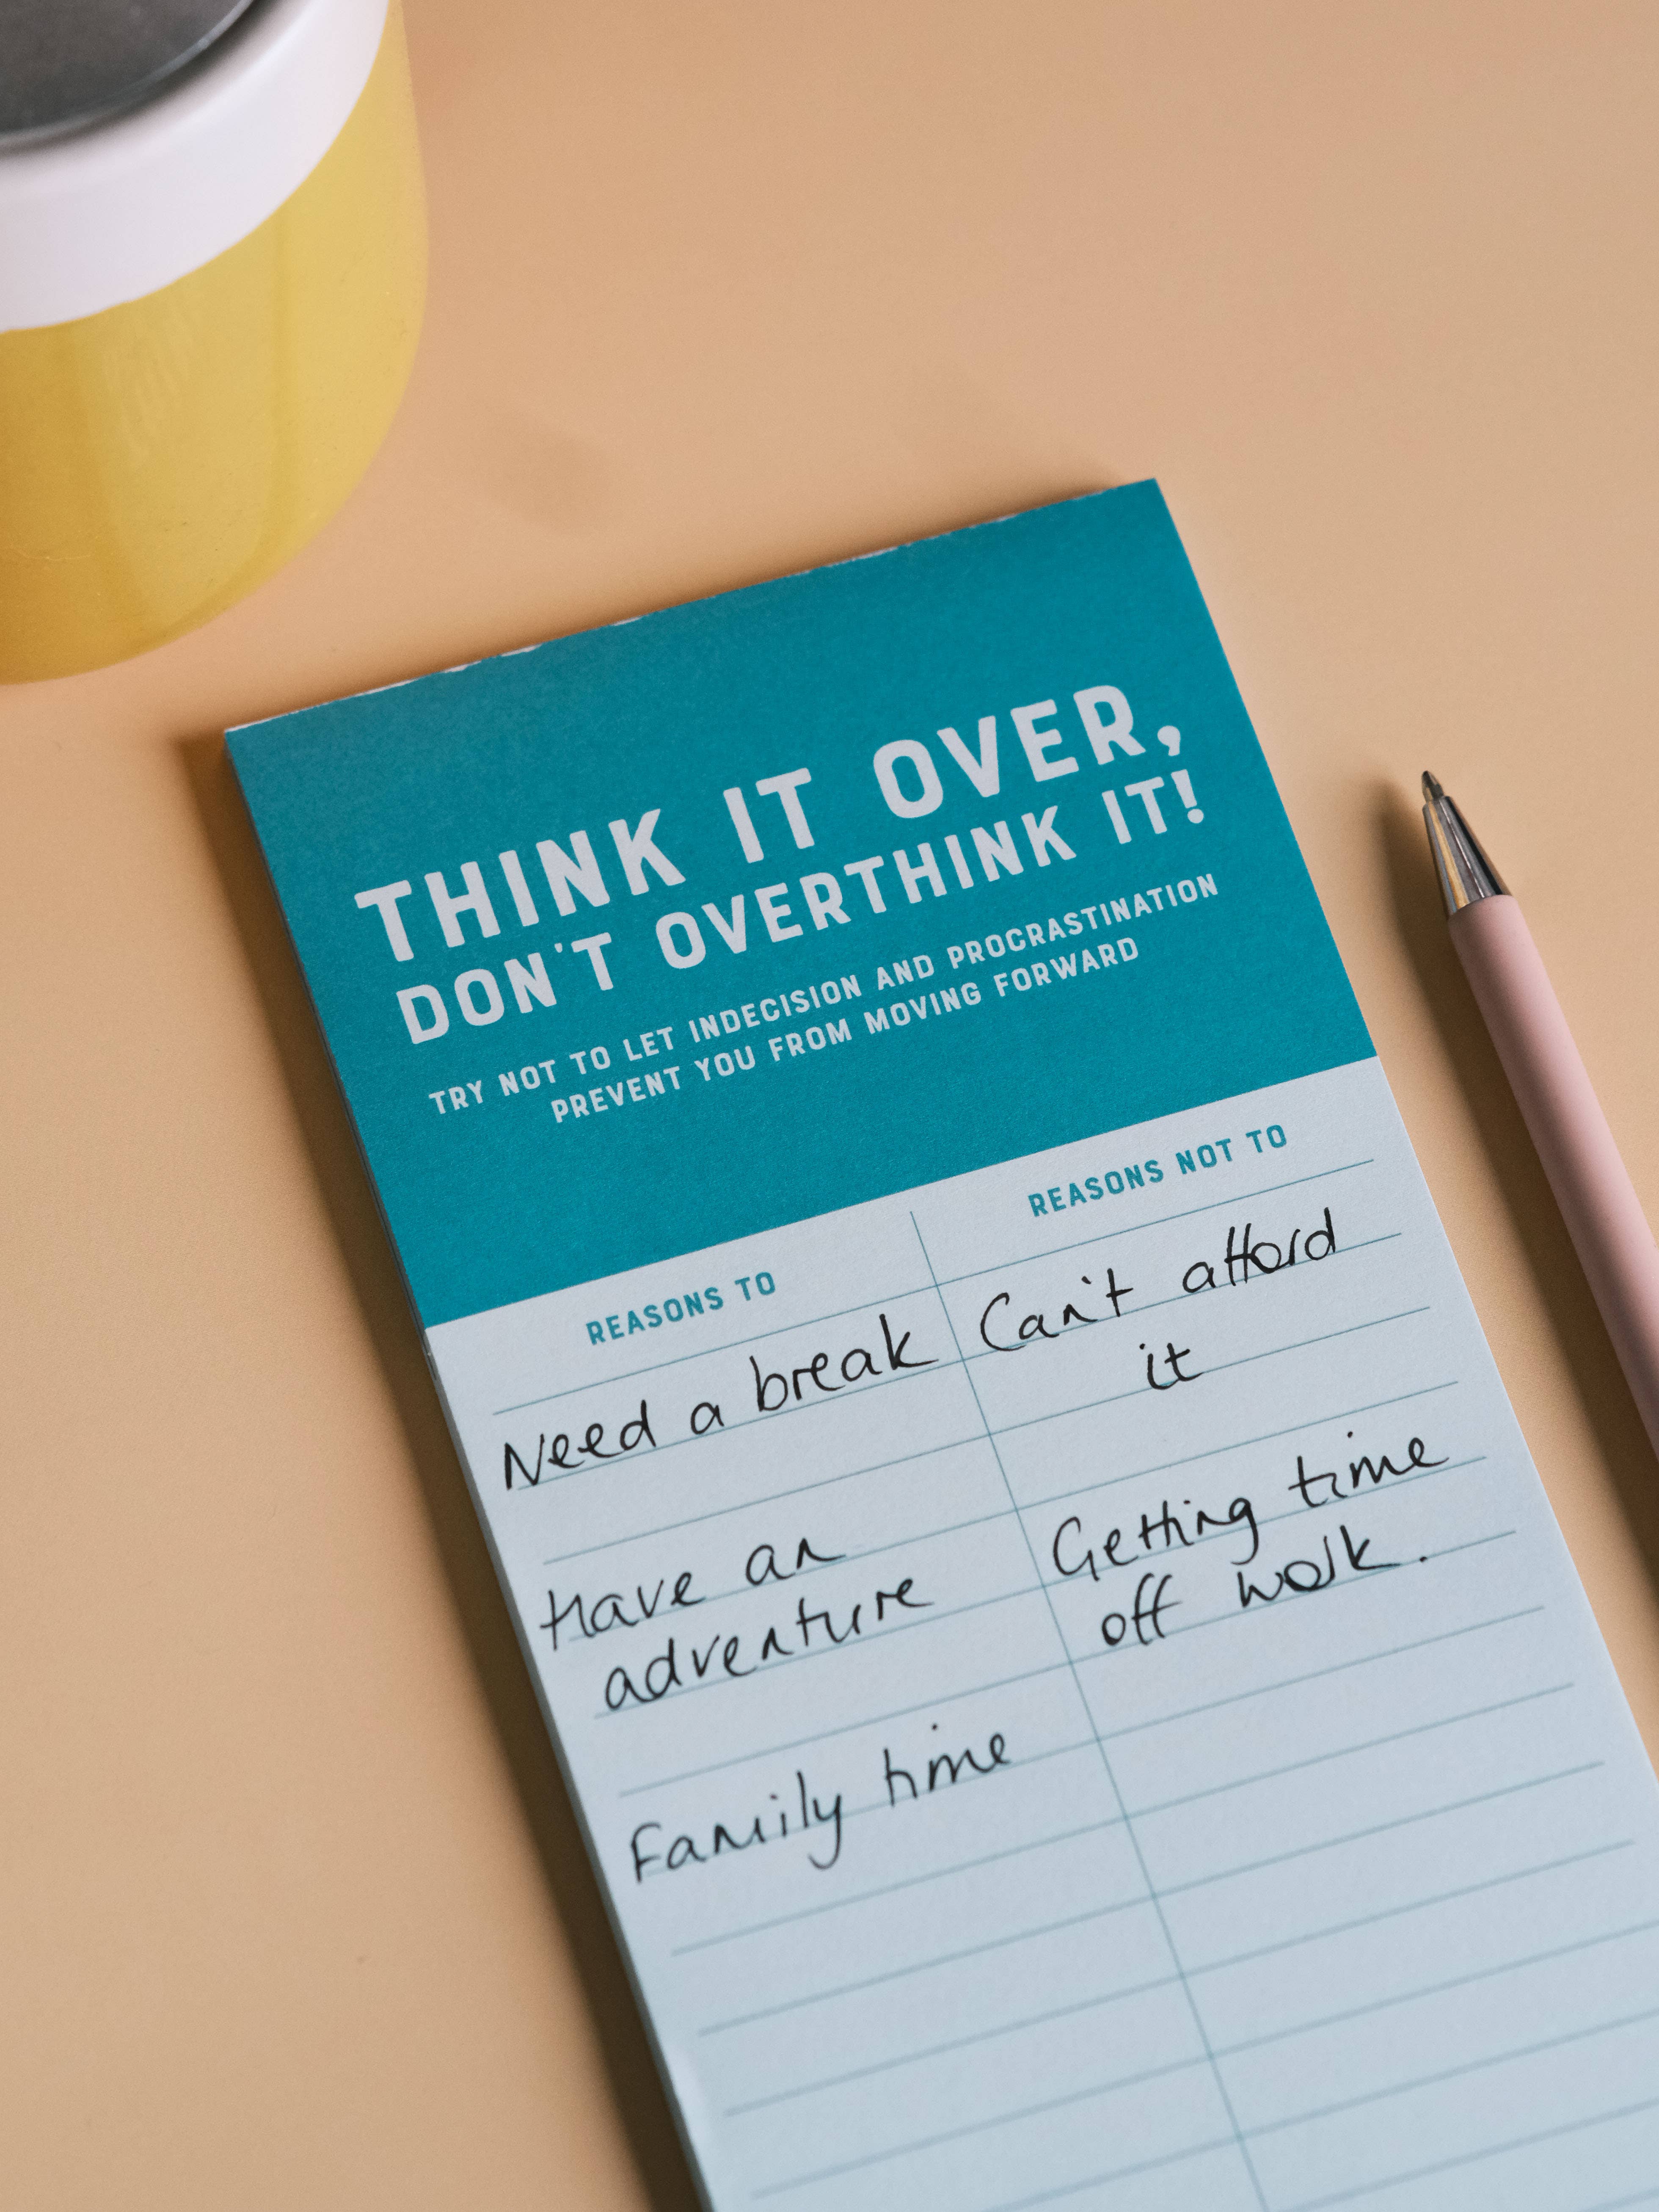 THINK IT OVER,
DON'T OVERTHINK IT!
TRY NOT TO LET INDECISION AND PROCRASTINATION
PREVENT YOU FROM MOVING FORWARD
REASONS TO
Need a break
Have an
adventure
Family time
REASONS NOT TO
Can't afford
it
Getting time
off work.